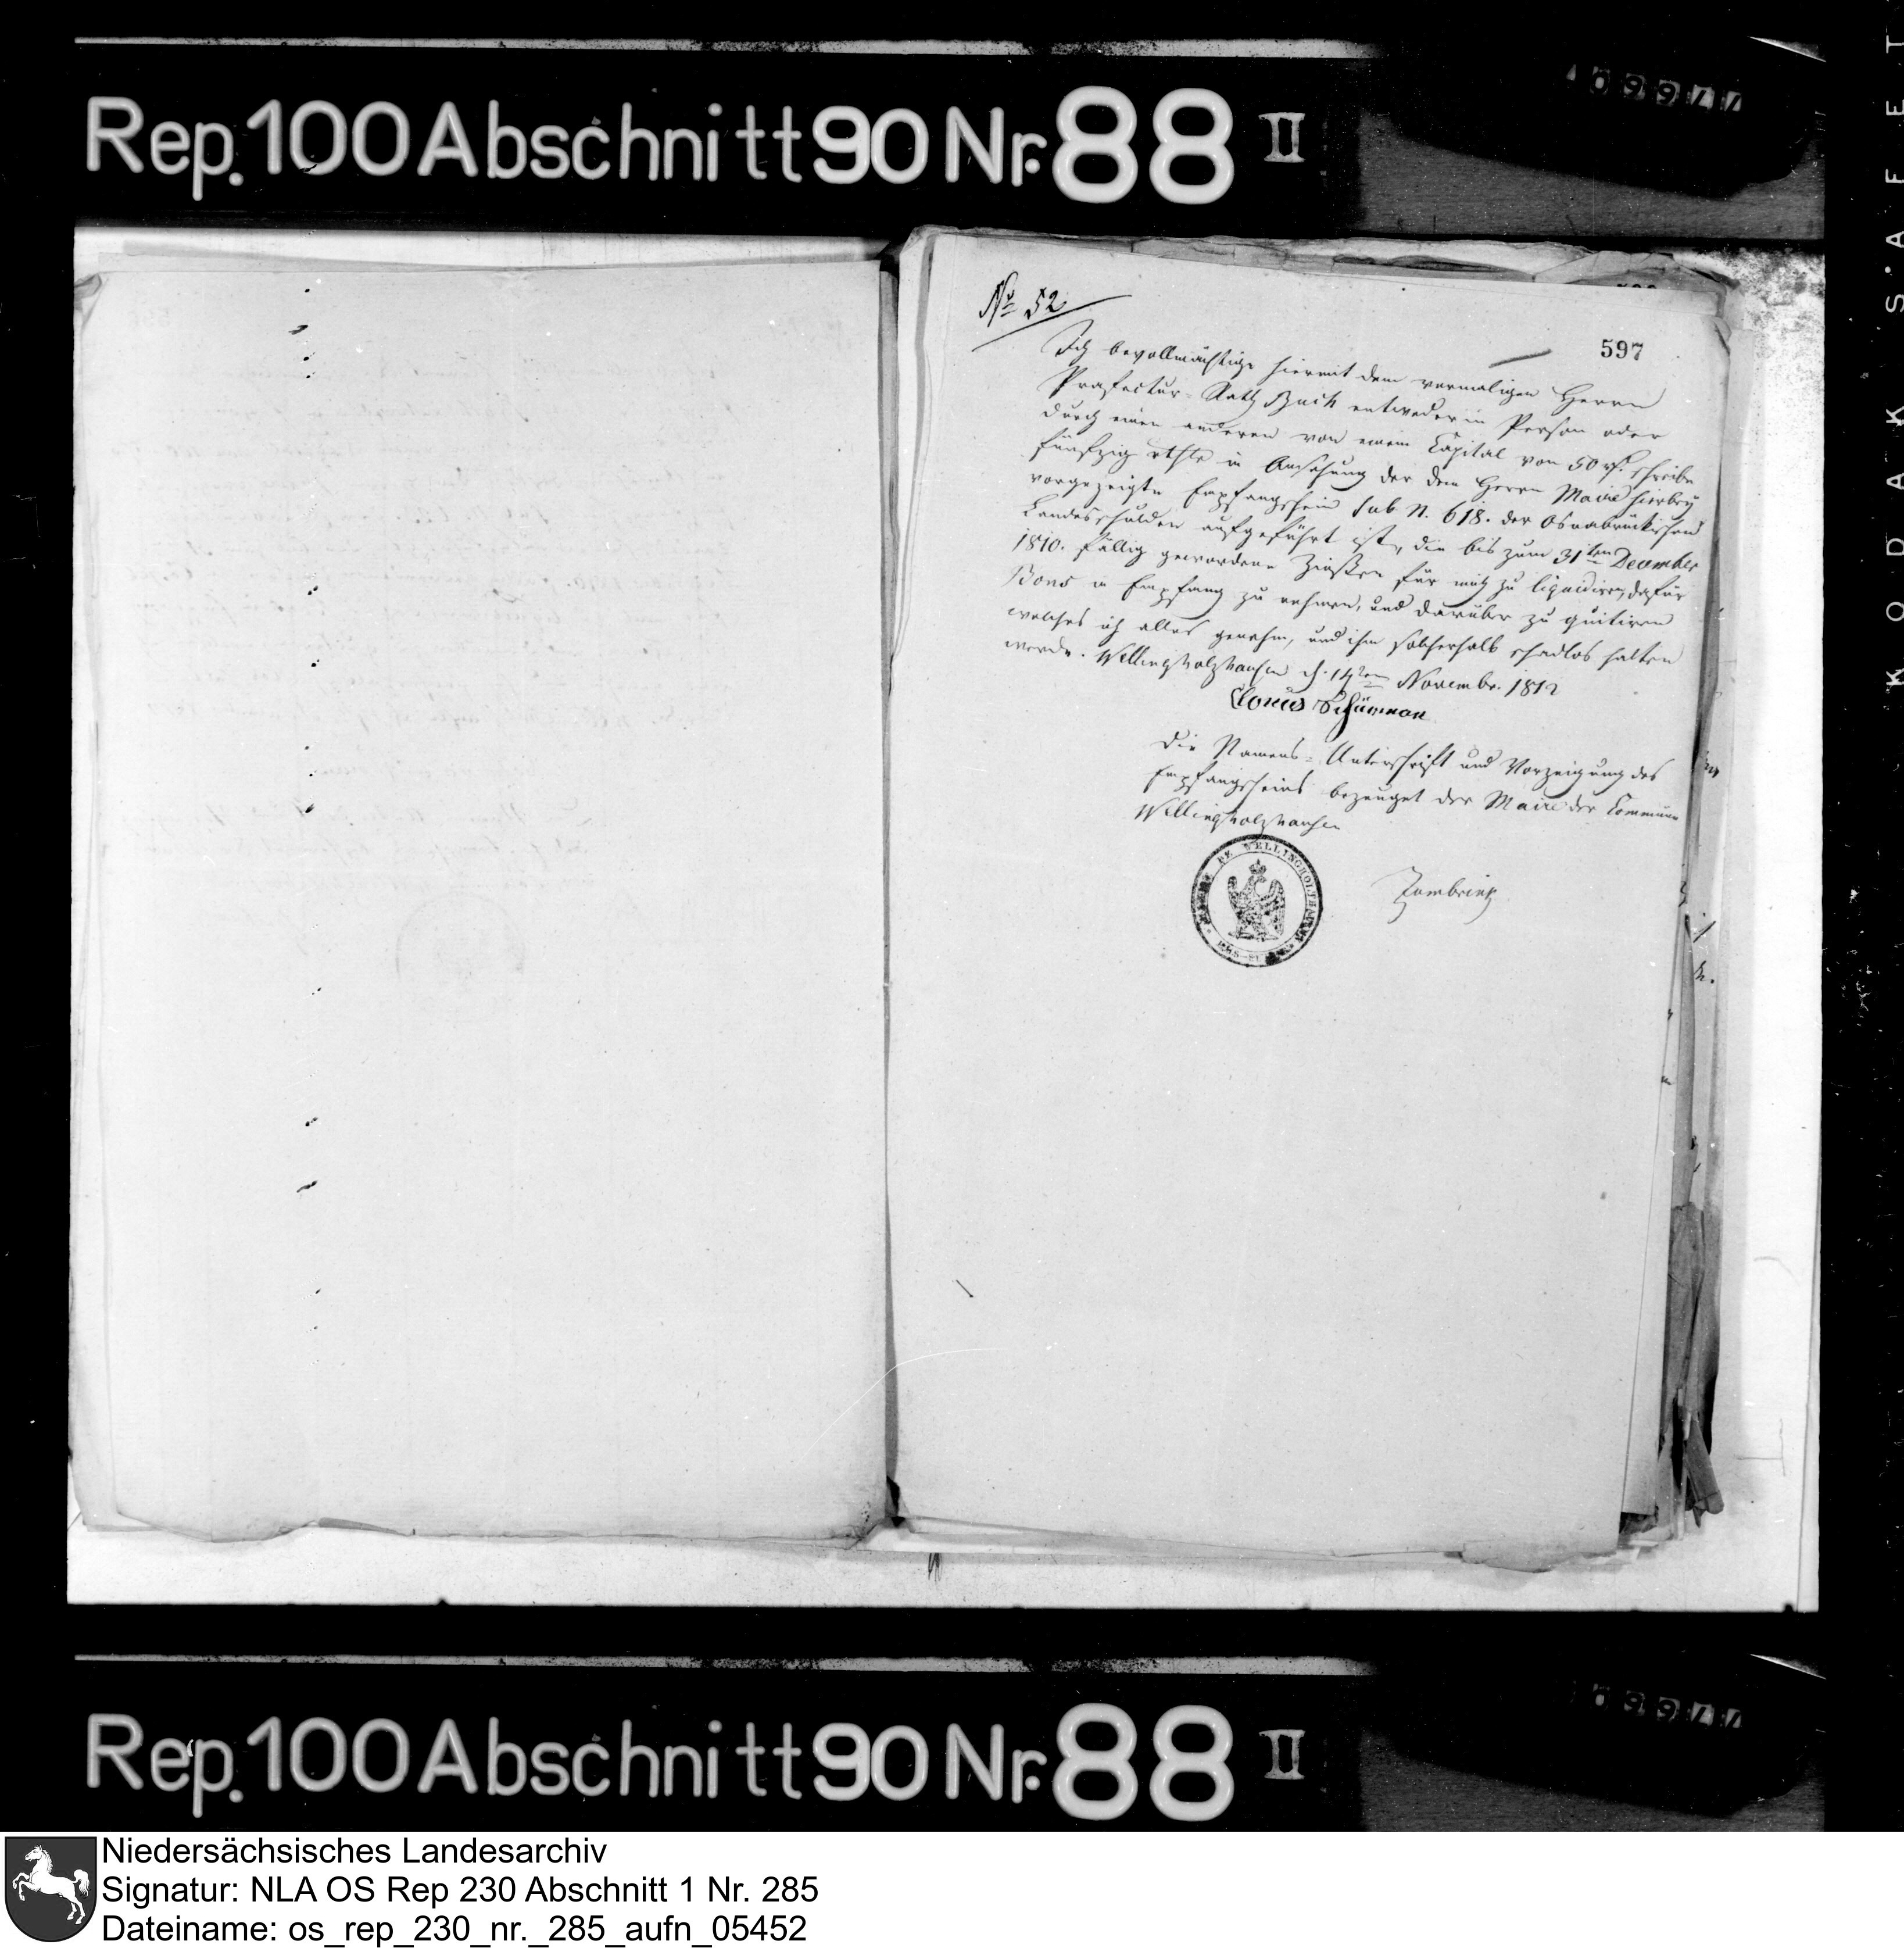 Rep. 100 Abschnitt 90 Nr. 88 II
No 52
597
Ich bevollmächtige hiermit dem vormaligen Herrn
Praefectur-Rath Buch entweder in Person oder
durch einen anderen von einem Capital von 50 schreibe
fünfzig rthlr in Ansehung der dem Herrn Maire hierbey
vorgezeigte Empfangschein sub N. 618. der Osnabrückschen
Landesschulden aufgeführt ist, die bis zum 31ten December
1810. fällig gewordene Zinßen für mich zu liquidiren, dafür
Bons in Empfang zu nehmen, und darüber zu quitiren
welches ich alles genehm, und ihm schadlos halten
werde. Wellingholzhausen d. 14ten Novembr. 1812
Schürman
Die Namens-Unterschrift und Vorzeigung des
Empfangscheins bezeuget der Maire der Commune
Wellingholzhausen
DE WELLINGHOLTHAUSEN
Rep. 100 Abschnitt 90 Nr. 88 II
KODAK SAFET
Niedersächsisches Landesarchiv
Signatur: NLA OS Rep 230 Abschnitt 1 Nr. 285
Dateiname: os_rep_230_nr._285_aufn_05452